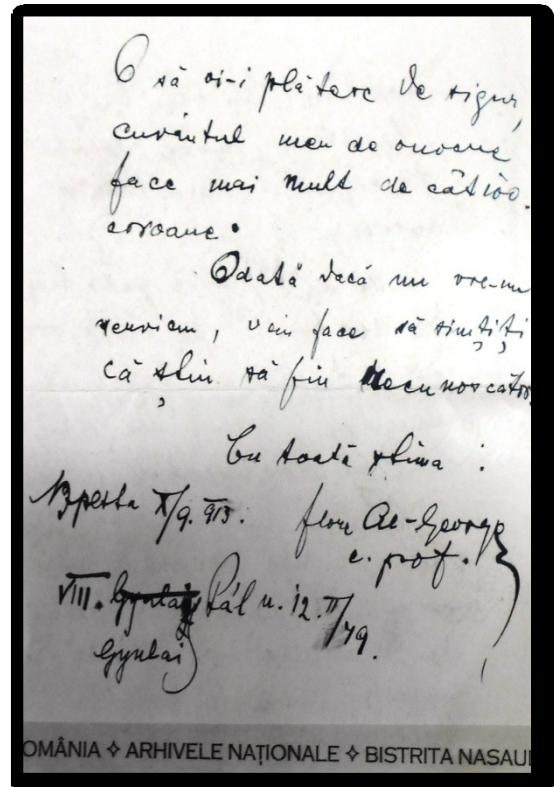 O să vi-i plătesc de sigur,
cuvântul meu de onoare
face mai mult de cât 100.
coroane.
Odată dacă nu vre-un
serviciu, voiu face să simțiți
că știu să fiu recunoscător
Cu toată stima :
Bpesta X/9. 913. Al-George
c. prof.
VIII. Pál u. 12. II/79.
Gyulai
OMÂNIA ✧ ARHIVELE NAȚIONALE ✧ BISTRITA NASAU